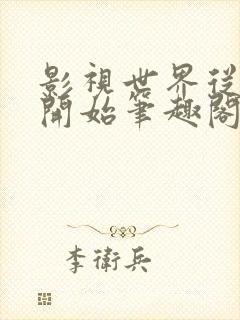 影視世界從
開始筆趣閣
李衛兵